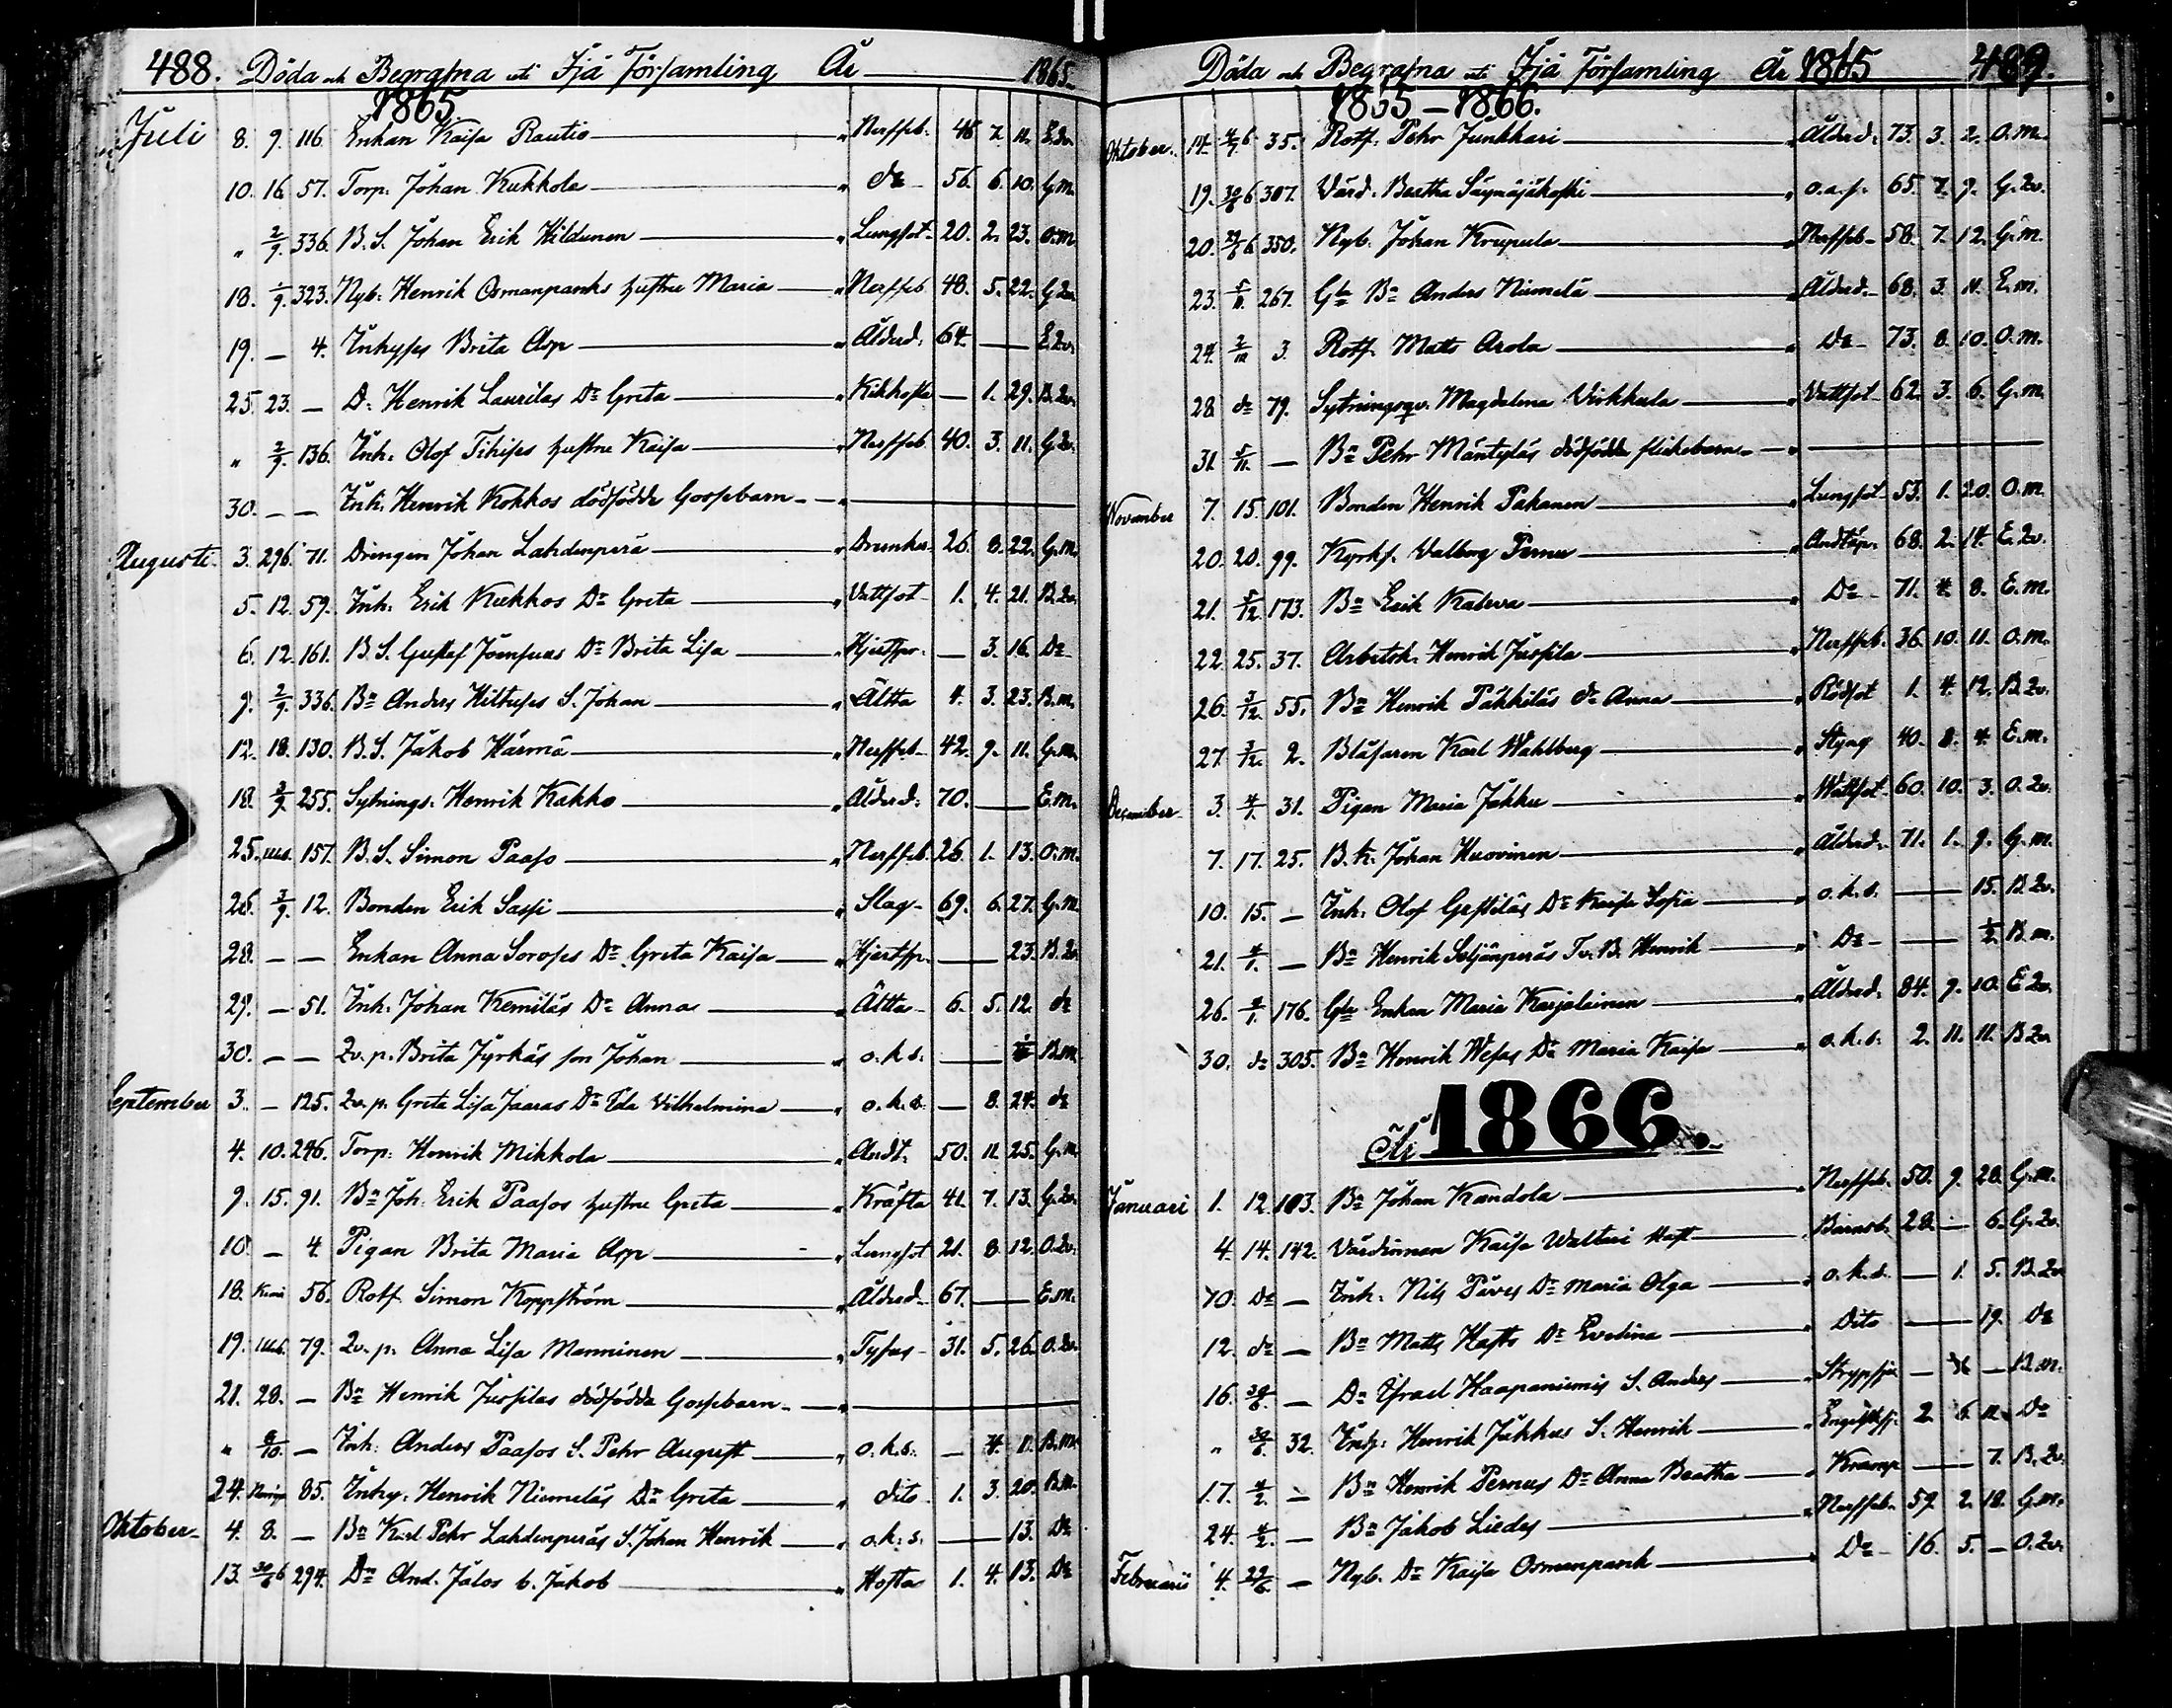 488. Döda och Begrafna uti Ijä Församling År 1865
1865
Juli 8. 9. 116. Enkan Kaisa Rautio " Nerffeb. 46 7. 11. E.Qv.
10. 16. 57. Torp. Johan Kukkola " do 56. 6. 10. G.m.
" 2/9. 336. B.S. Johan Erik Hildunen " Lungsot 20. 2. 23. O.m.
18. 1/9. 323. Nyb. Henrik Osmanpanks hustru Maria " Nerffeb. 48. 5. 22. G.Qv.
19. — 4. Inhyses Brita Asp " Ålderd. 64. — E.Qv.
25. 23. — D: Henrik Laurilas Dr Greta " Kikhosta — 1. 29. B.Qv.
" 2/9. 136. Inh. Olof Tihises hustru Kaisa " Nerffeb. 40. 3. 11. G.Qv.
30. — — Inh. Henrik Kokkos dödfödda Gossebarn "
Augusti 3. 296. 71. Drängen Johan Lahdenperä " Drunkn. 26. 8. 22. G.m.
5. 12. 59. Inh. Erik Kukkos Dr Greta " Vattsot 1. 4. 21. B.Qv.
6. 12. 161. B.S. Gustaf Joensuus Dr Brita Lisa " — 3. 16. Do
9. 2/9. 336. Bn Anders Hiltuses S. Johan " Ältta 4. 3. 23. B.m.
12. 18. 130. B.S. Jakob Härmä " Nerffeb. 42. 9. 11. G.m.
18. 3/9. 255. Sytnings. Henrik Kakko " Ålderd. 70. — E.m.
25. Uleå. 157. B.S. Simon Paaso " Nerffeb. 26. 1. 13. O.m.
26. 3/9. 12. Bonden Erik Sassi " Slag 69. 6. 27. G.m.
28. — — Enkan Anna Soroses Dr Greta Kaisa " — 23. B.Qv.
29. — 51. Inh. Johan Kemiläs Dr Anna " Ältta 6. 5. 12. do
30. — — Qv.p. Brita Jyrkäs son Johan " o.k.s. — B.m.
September 3. — 125. Qv.p. Greta Lisa Jaaras Dr Ida Vilhelmina " o.k.s. — 8. 24. do
4. 10. 246. Torp. Henrik Mikkola " Andt. 50. 11. 25. G.m.
9. 15. 91. Bn Joh. Erik Paasos hustru Greta " Kräfta 41. 7. 13. G.Qv.
10. — 4. Pigan Brita Maria Asp " Lungsot 21. 8. 12. O.Qv.
18. Kemi 56. Rotf. Simon Koppström " Ålderd. 67. — E.m.
19. Uleå. 79. Qv.p. Anna Lisa Manninen " Tyfus 31. 5. 26. O.Qv.
21. 28. — Bn Henrik Jussilas dödfödda Gossebarn "
" 8/10. — Inh. Anders Paasos S. Pehr August " o.k.s. — 4. 1. B.m.
24. 85. Inhy. Henrik Niemeläs Dr Greta " dito 1. 3. 20.
Oktober 4. 8. — Bn Karl Pehr Lahdenperäs S. Johan Henrik " o.k.s. — 13. Do
13. 30/6 6 294. Dn And. Jalos b. Jakob " Hosta 1. 4. 13. Do
Döda och Begrafna uti Ijä Församling År 1865 489.
1865–1866.
Oktober 14. 35. Rotf. Pehr Junkkari " Ålderd. 73. 3. 2. O.m.
19. 307. Värd. Beatha Säynäjäkoski " o.a.s. 65. 7. 9. G.Qv.
20. 350. Nyb. Johan Krupula " Nerffeb. 58. 7. 12. G.m.
23. 5/11. 267. Gla Bn Anders Niemelä " Ålderd. 68. 3. 11. E.m.
24. 3. Rotf. Matts Arola " Do 73. 8. 10. O.m.
28. do 79. Sytningsqv. Magdalena Virkkula " Vattsot 62. 3. 6. G.m.
31. 5/11. — Bn Pehr Mäntyläs dödfödda flickebarn "
November 7. 15. 101. Bonden Henrik Pakanen " Lungsot 53. 1. 20. O.m.
20. 20. 99. Kyrkf. Valborg Pernu " Andtäp. 68. 2. 14. E.Qv.
21. 5/12. 173. Bn Erik Kaleva " Do 71. 4. 8. E.m.
22. 25. 37. Arbetsk. Henrik Jussila " Nerffeb. 36. 10. 11. O.m.
26. 3/12. 55. Bn Henrik Pähkiläs Dr Anna " Rödsot 1. 4. 12. B.Qv.
27. 3/12. 2. Blåsaren Karl Wahlberg " Slag 40. 8. 4. E.m.
December 3. 4/1. 31. Pigan Maria Jakku " Wattsot 60. 10. 3. O.Qv.
7. 17. 25. B.k. Johan Huovinen " Ålderd. 71. 1. 9. G.m.
10. 15. — Inh. Olof Gestiläs Dr Kaisa Sofia " o.k.s. — 15. B.Qv.
21. 4/1. — Bn Henrik Soljänperäs Tv.B. Henrik " Do — 1/2. B.m.
26. 4/1. 176. Gla Enkan Maria Karjalainen " Ålderd. 84. 9. 10. E.Qv.
30. do 305. Bn Henrik Wesas Dr Maria Kaisa " o.k.s. 2. 11. 11. B.Qv.
År 1866.
Januari 1. 12. 103. Bn Johan Kandola " Nerffeb. 50. 9. 28. G.m.
4. 14. 142. Värdinnan Kaisa Waltari Haft " Barnsb. 28. — 6. G.Qv.
10. Do — Inh. Nils Päves Dr Maria Olga " o.k.s. — 1. 5. B.Qv.
12. do — Bn Matts Hasts Dr Evelina " Dito — 19. Do
16. — Dn Israel Haapaniemis S. Anders " — B.m.
" 32. Inhy. Henrik Jakkus S. Henrik " 2. 6. 11. Do
17. 4/2. — Bn Henrik Pernus Dr Anna Beatha " Kramp — 7. B.Qv.
24. 4/2. — Bn Jakob Liedes " Nerffeb. 59. 2. 18. G.m.
Februarii 4. — Nyb. Dr Kaisa Osmanpank " Do 16. 5. — O.Qv.